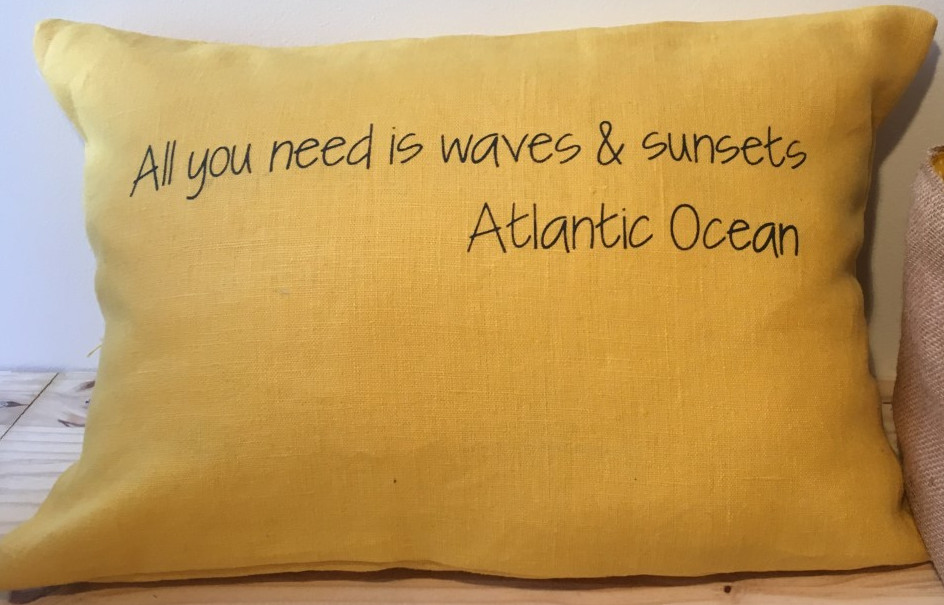 All you need is waves & sunsets
Atlantic Ocean